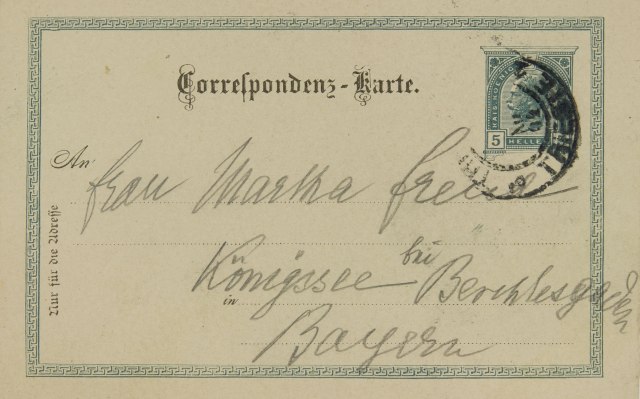 Correspondenz-Karte.
KAIS. KOENIGL.
5 HELLER
TRIEST
An
Frau Martha Freud
Nur für die Adresse
Königssee bei Berchtesgaden
in
Bayern